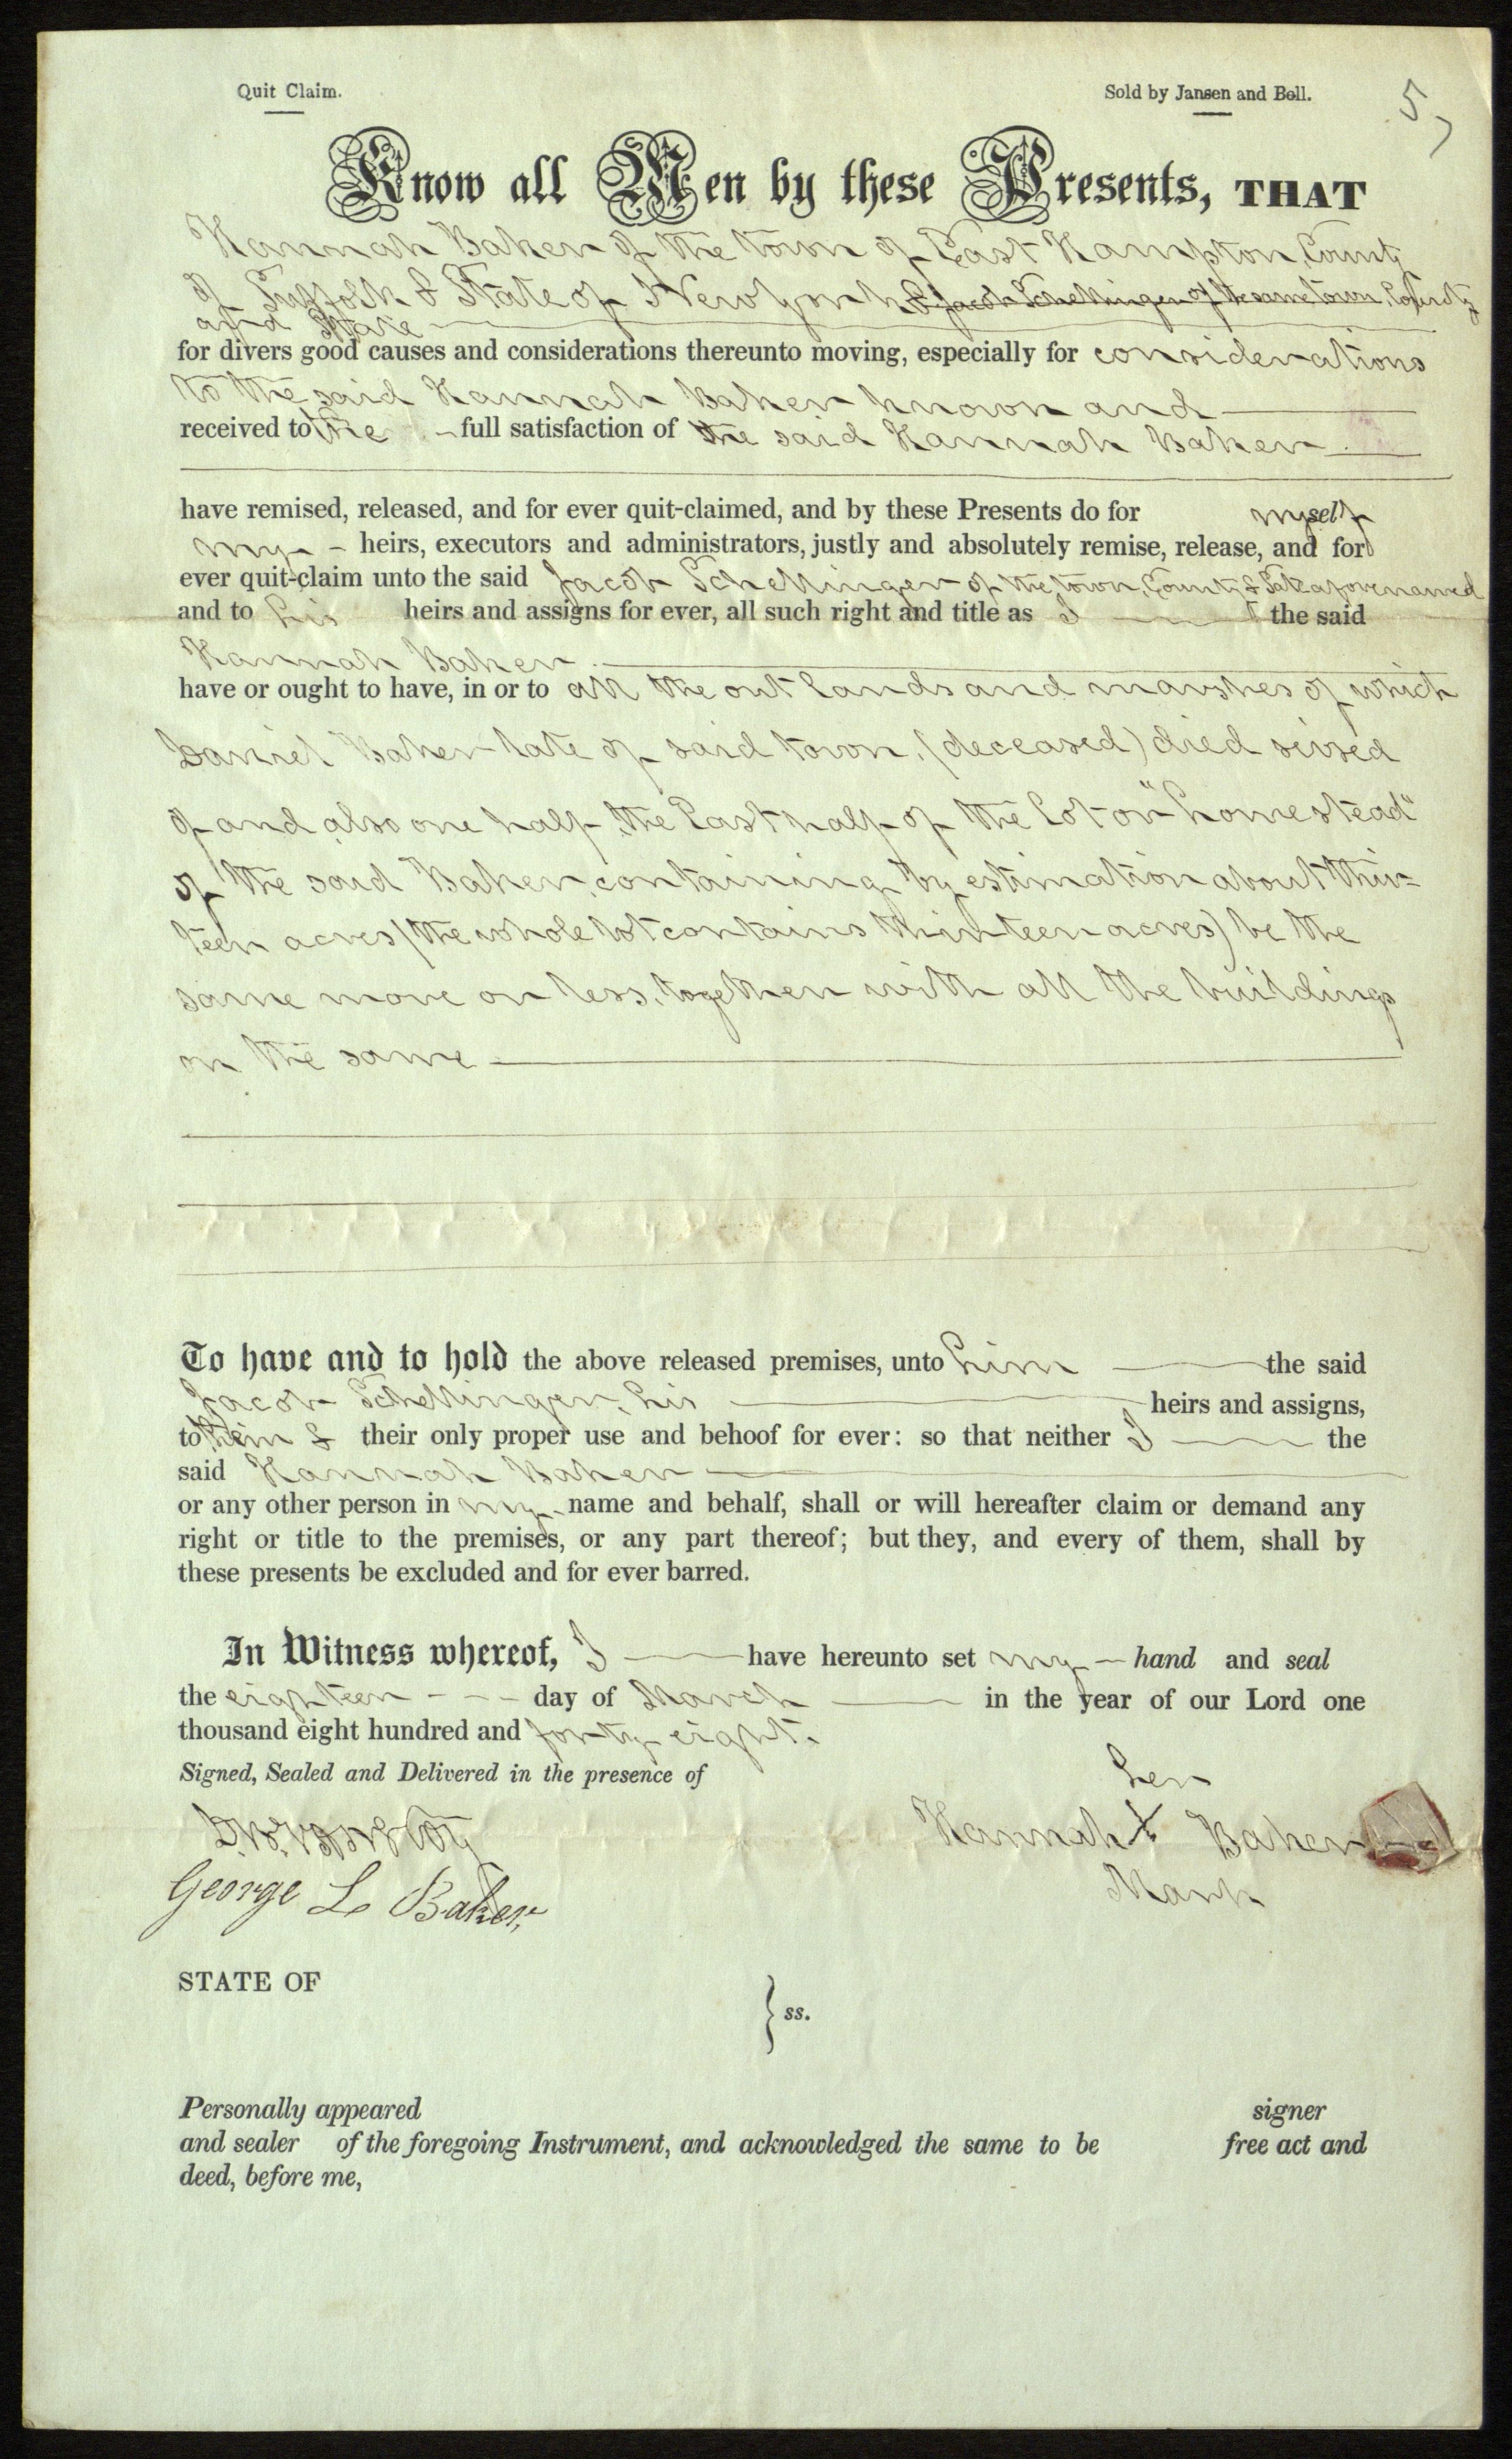 Quit Claim.
Sold by Jansen and Bell.
5
Know all Men by these Presents, THAT
Hannah Baker of the town of East Hampton, County
of Suffolk & State of New York & Jacob Schellinger of the same town, County
and State
for divers good causes and considerations thereunto moving, especially for considerations
to the said Hannah Baker known and
received to the full satisfaction of the said Hannah Baker
have remised, released, and for ever quit-claimed, and by these Presents do for myself
my heirs, executors and administrators, justly and absolutely remise, release, and for
ever quit-claim unto the said Jacob Schellinger of the town, County & State aforenamed
and to his heirs and assigns for ever, all such right and title as I the said
Hannah Baker
have or ought to have, in or to all the out lands and marshes of which
Daniel Baker late of said town, (deceased) died seised
of and also one half, the East half of the lot or "homestead"
of the said Baker, containing by estimation about thir=
teen acres (the whole lot contains thirteen acres) be the
same more or less, together with all the buildings
on the same
To have and to hold the above released premises, unto him the said
Jacob Schellinger, his heirs and assigns,
to them & their only proper use and behoof for ever: so that neither I the
said Hannah Baker
or any other person in my name and behalf, shall or will hereafter claim or demand any
right or title to the premises, or any part thereof; but they, and every of them, shall by
these presents be excluded and for ever barred.
In Witness whereof, I have hereunto set my hand and seal
the eighteen day of March in the year of our Lord one
thousand eight hundred and forty eight.
Signed, Sealed and Delivered in the presence of
her
Hannah X Baker
Mark
George L. Baker,
STATE OF
} ss.
Personally appeared signer
and sealer of the foregoing Instrument, and acknowledged the same to be free act and
deed, before me,